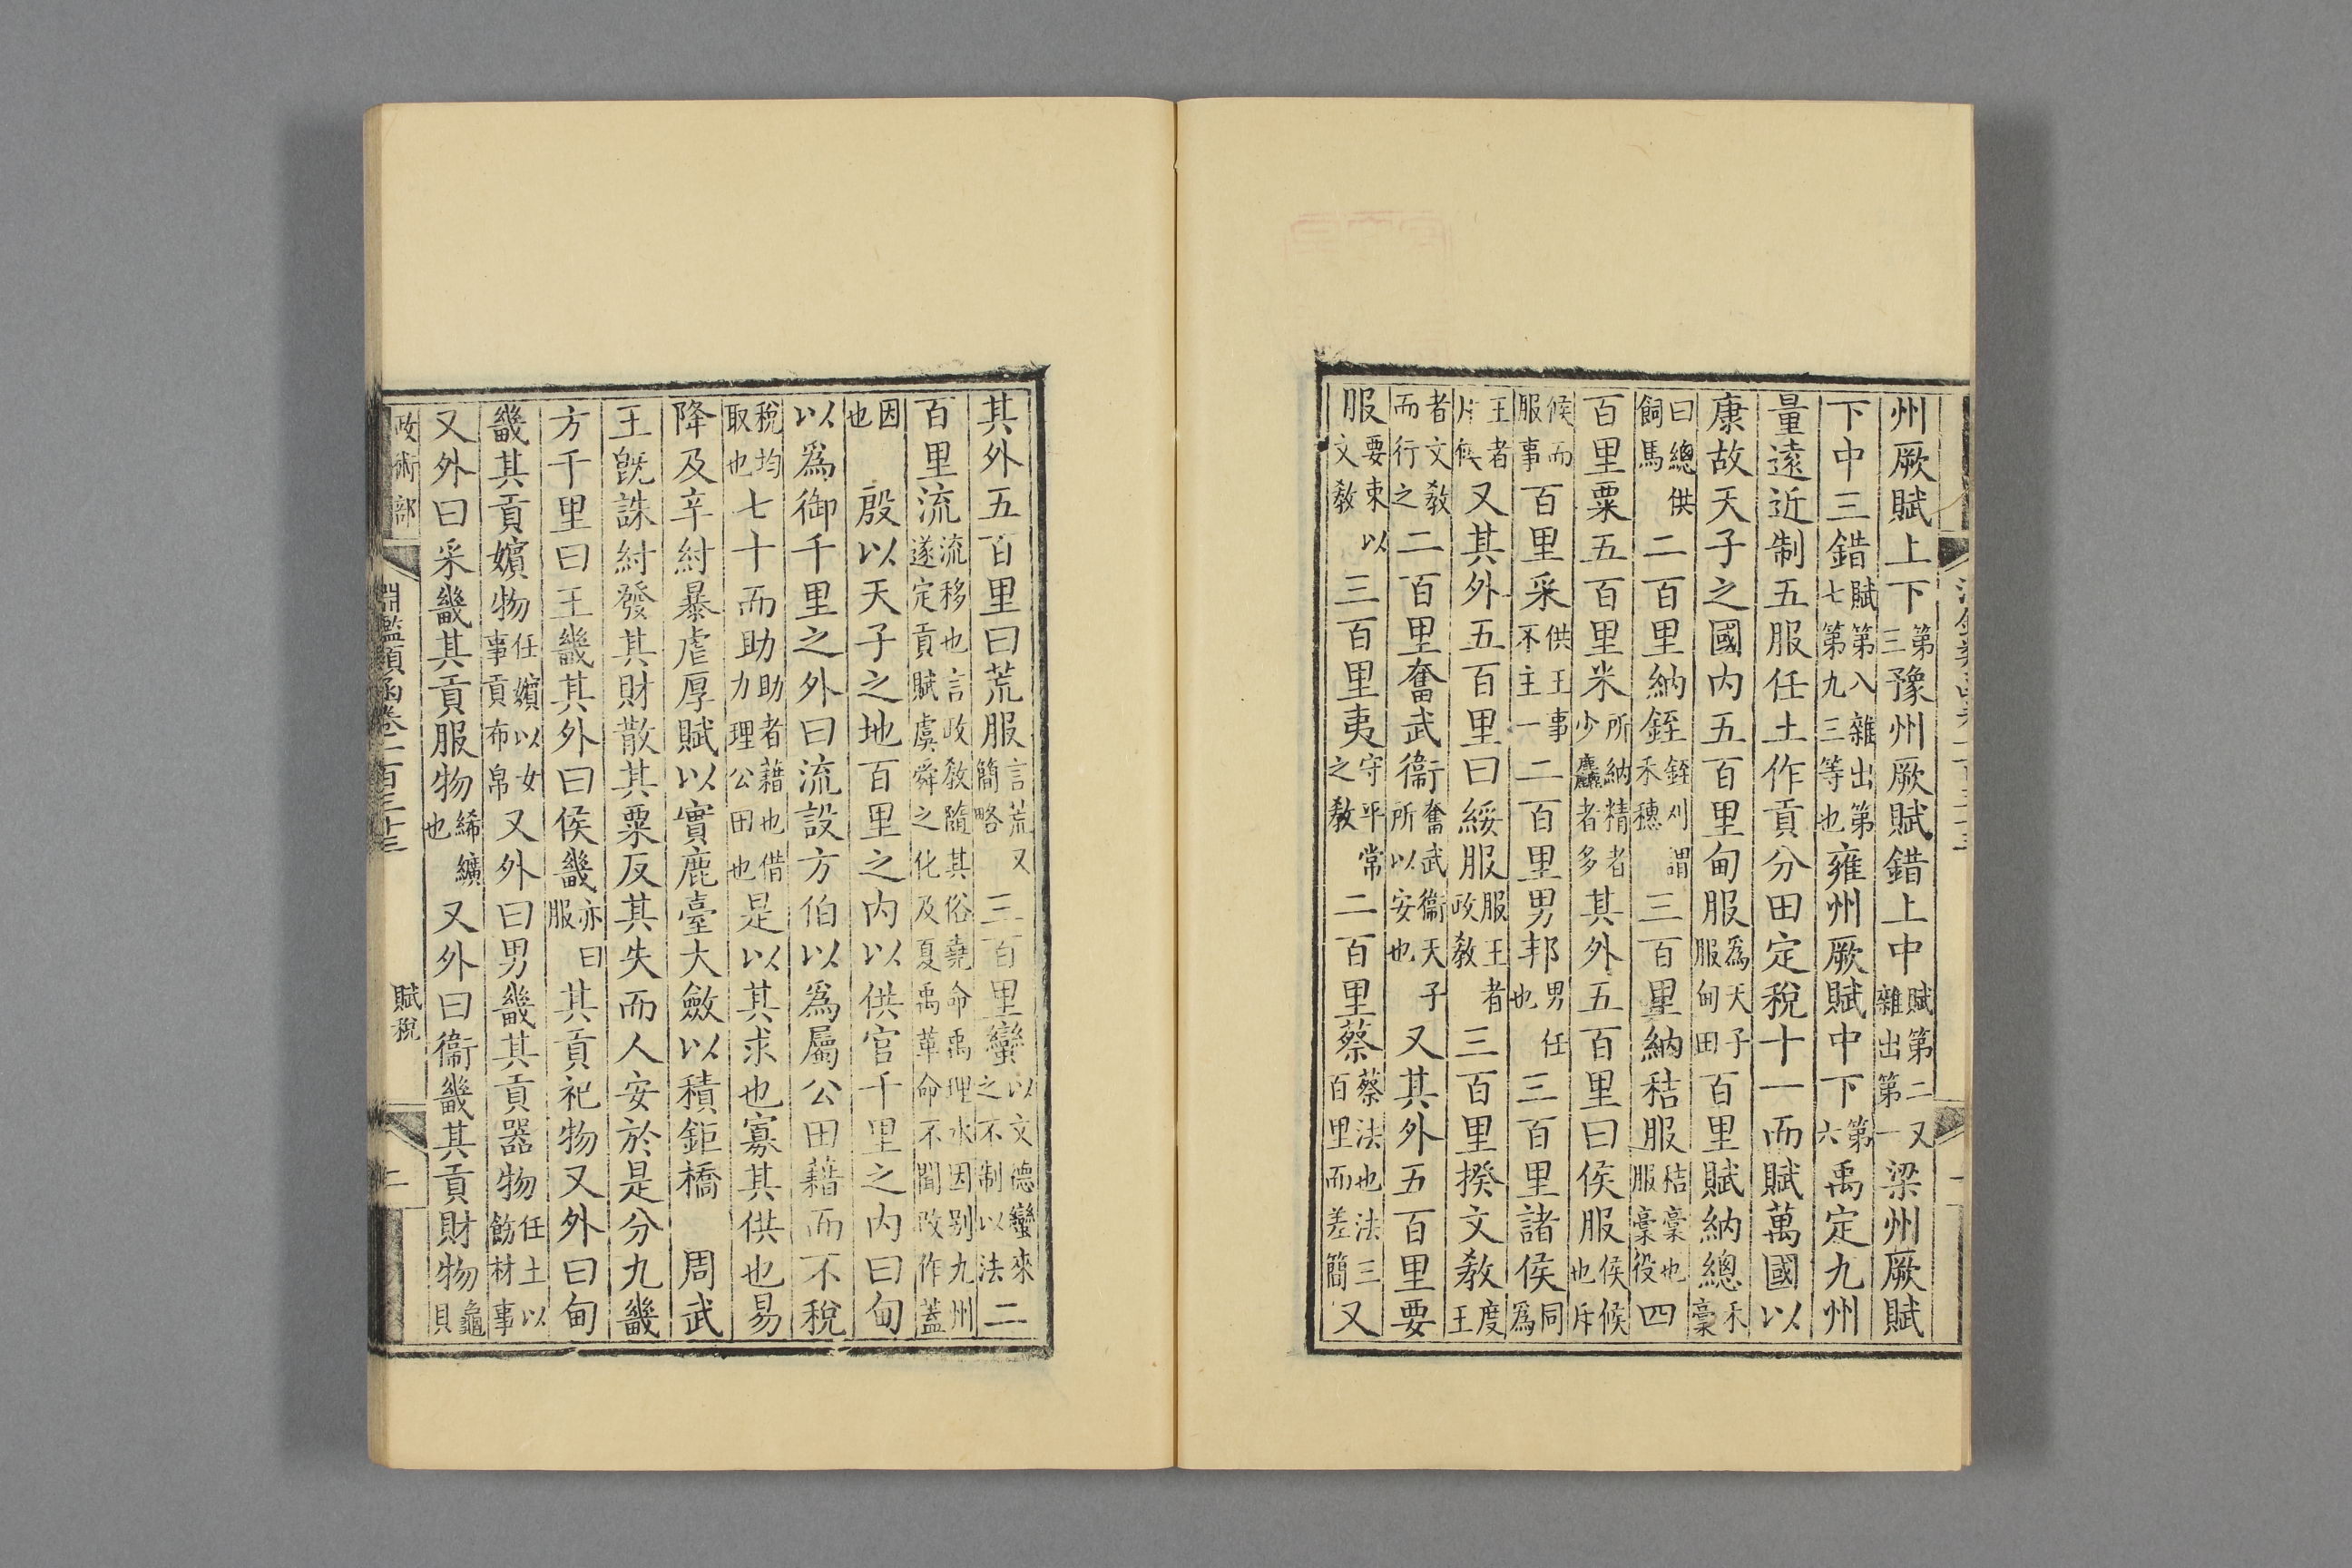 州厥賦上下第三豫州厥賦錯上中賦第二又雜出第一梁州厥賦
下中三錯賦第八雜出第七第九三等也雍州厥賦中下第六禹定九州
量遠近制五服任土作貢分田定稅十一而賦萬國以
康故天子之國內五百里甸服爲天子服甸田百里賦納總禾稾
曰總供飼馬二百里納銍銍刈謂禾穗三百里納秸服秸稾也服稾役四
百里粟五百里米所納精者少麤者多其外五百里曰侯服侯候也斥
候而服事百里采供王事不主一二百里男邦男任也三百里諸侯同爲
王者斥候又其外五百里曰綏服服王者政教三百里揆文教度王
者文教而行之二百里奮武衞奮武衞天子所以安也又其外五百里要
服要束以文教三百里夷守平常之教二百里蔡蔡法也法三百里而差簡又
其外五百里曰荒服言荒又簡略三百里蠻以文德蠻來之不制以法二
百里流流移也言政教隨其俗堯命禹理水因別九州遂定貢賦虞舜之化及夏禹革命不聞改作蓋
因也 殷以天子之地百里之內以供官千里之內曰甸
以爲御千里之外曰流設方伯以爲屬公田藉而不稅
稅均取也七十而助助者藉也借力理公田也是以其求也寡其供也易
降及辛紂暴虐厚賦以實鹿臺大斂以積鉅橋 周武
王旣誅紂發其財散其粟反其失而人安於是分九畿
方千里曰王畿其外曰侯畿亦曰服其貢祀物又外曰甸
畿其貢嬪物任嬪以女事貢布帛又外曰男畿其貢器物任土以飭材事
又外曰采畿其貢服物絺纊也又外曰衞畿其貢財物龜貝
政術部 淵鑑類函卷一百三十三 賦稅 二